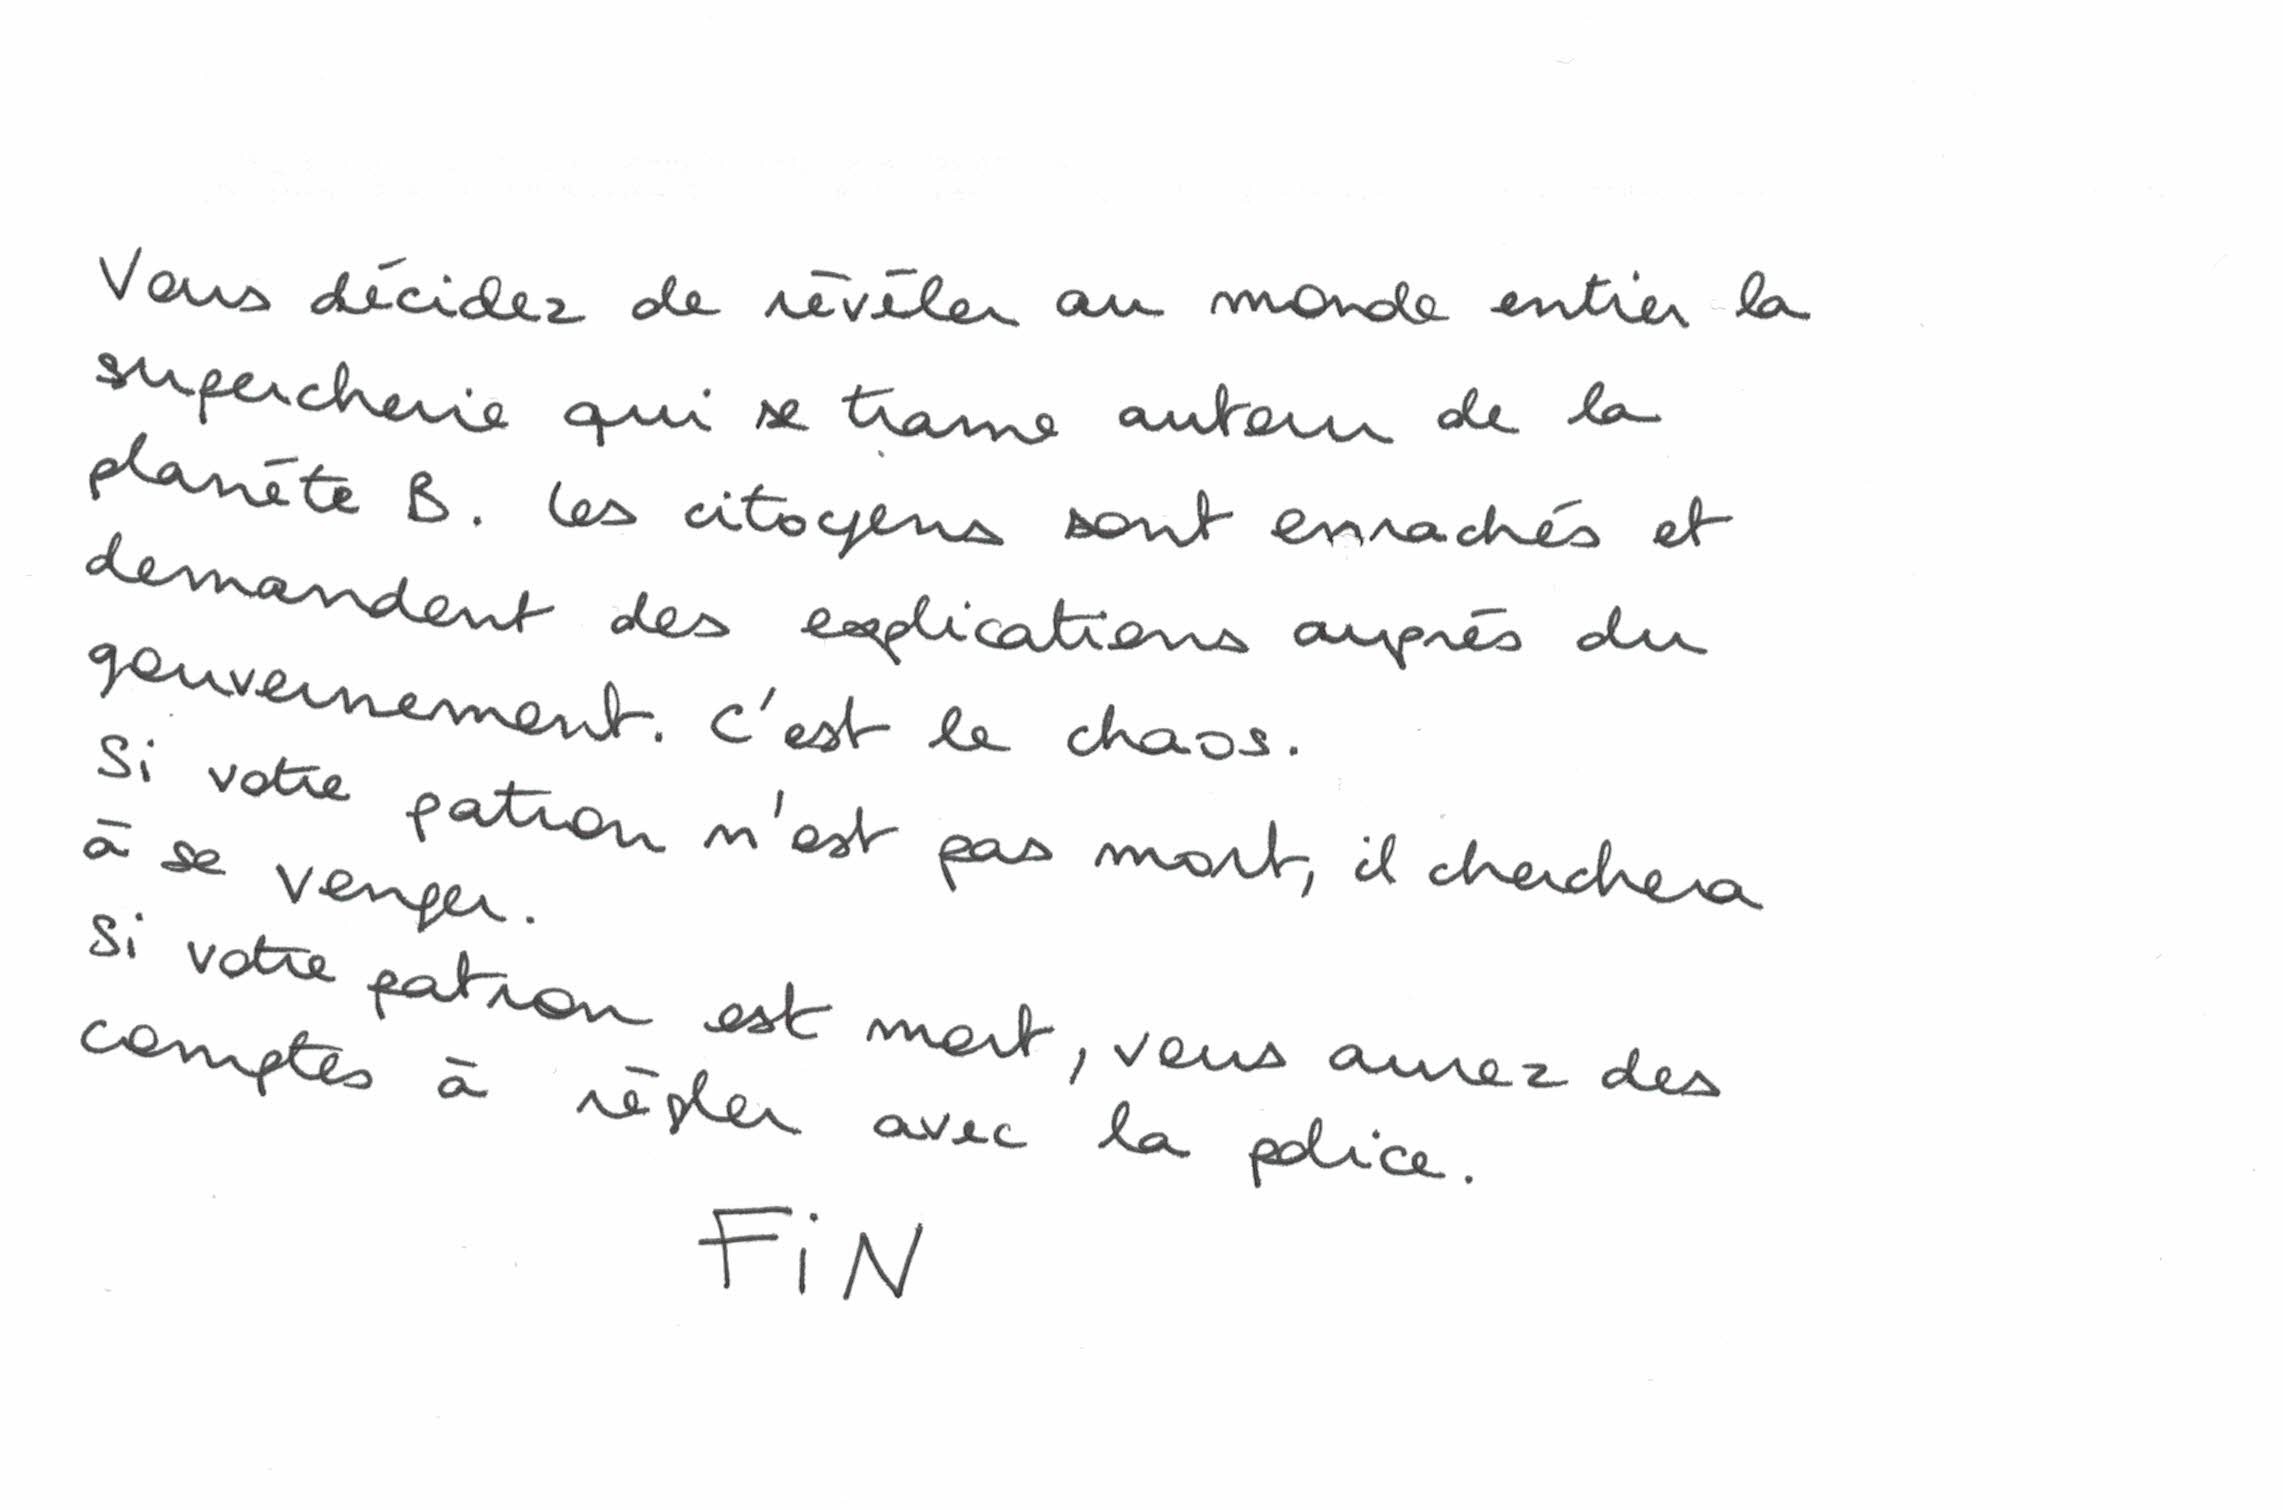 Vous décidez de révéler au monde entier la
supercherie qui se trame autour de la
planète B. Les citoyens sont enrachés et
demandent des explications auprès du
gouvernement. C'est le chaos.
Si votre patron n'est pas mort, il cherchera
à se venger.
Si votre patron est mort, vous aurez des
comptes à régler avec la police.
FiN